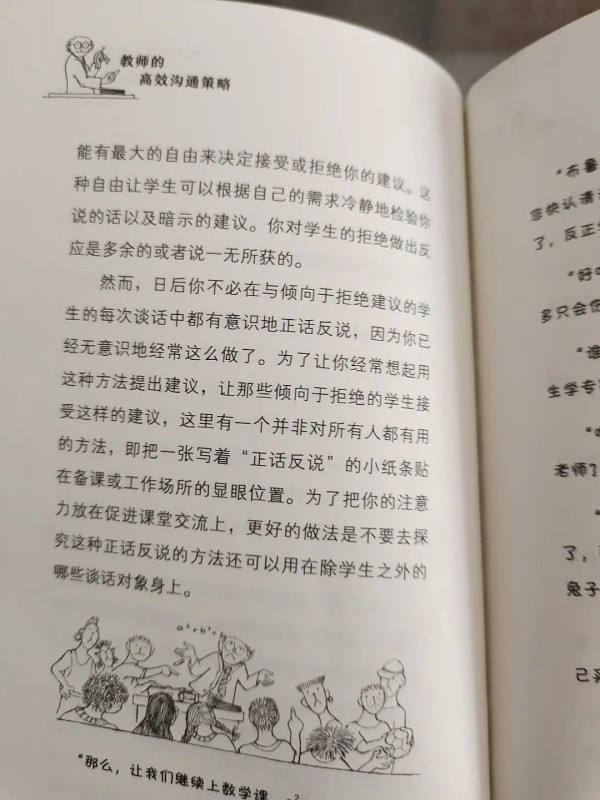 教师的
高效沟通策略
能有最大的自由来决定接受或拒绝你的建议。这
种自由让学生可以根据自己的需求冷静地检验你
说的话以及暗示的建议。你对学生的拒绝做出反
应是多余的或者说一无所获的。
然而，日后你不必在与倾向于拒绝建议的学
生的每次谈话中都有意识地正话反说，因为你已
经无意识地经常这么做了。为了让你经常想起用
这种方法提出建议，让那些倾向于拒绝的学生接
受这样的建议，这里有一个并非对所有人都有用
的方法，即把一张写着“正话反说”的小纸条贴
在备课或工作场所的显眼位置。为了把你的注意
力放在促进课堂交流上，更好的做法是不要去探
究这种正话反说的方法还可以用在除学生之外的
哪些谈话对象身上。
“那么，让我们继续上数学课
“布鲁
您快认请
了，反正
“好
多只会你
“谁
生学专
老师？
了，
兔子
己买